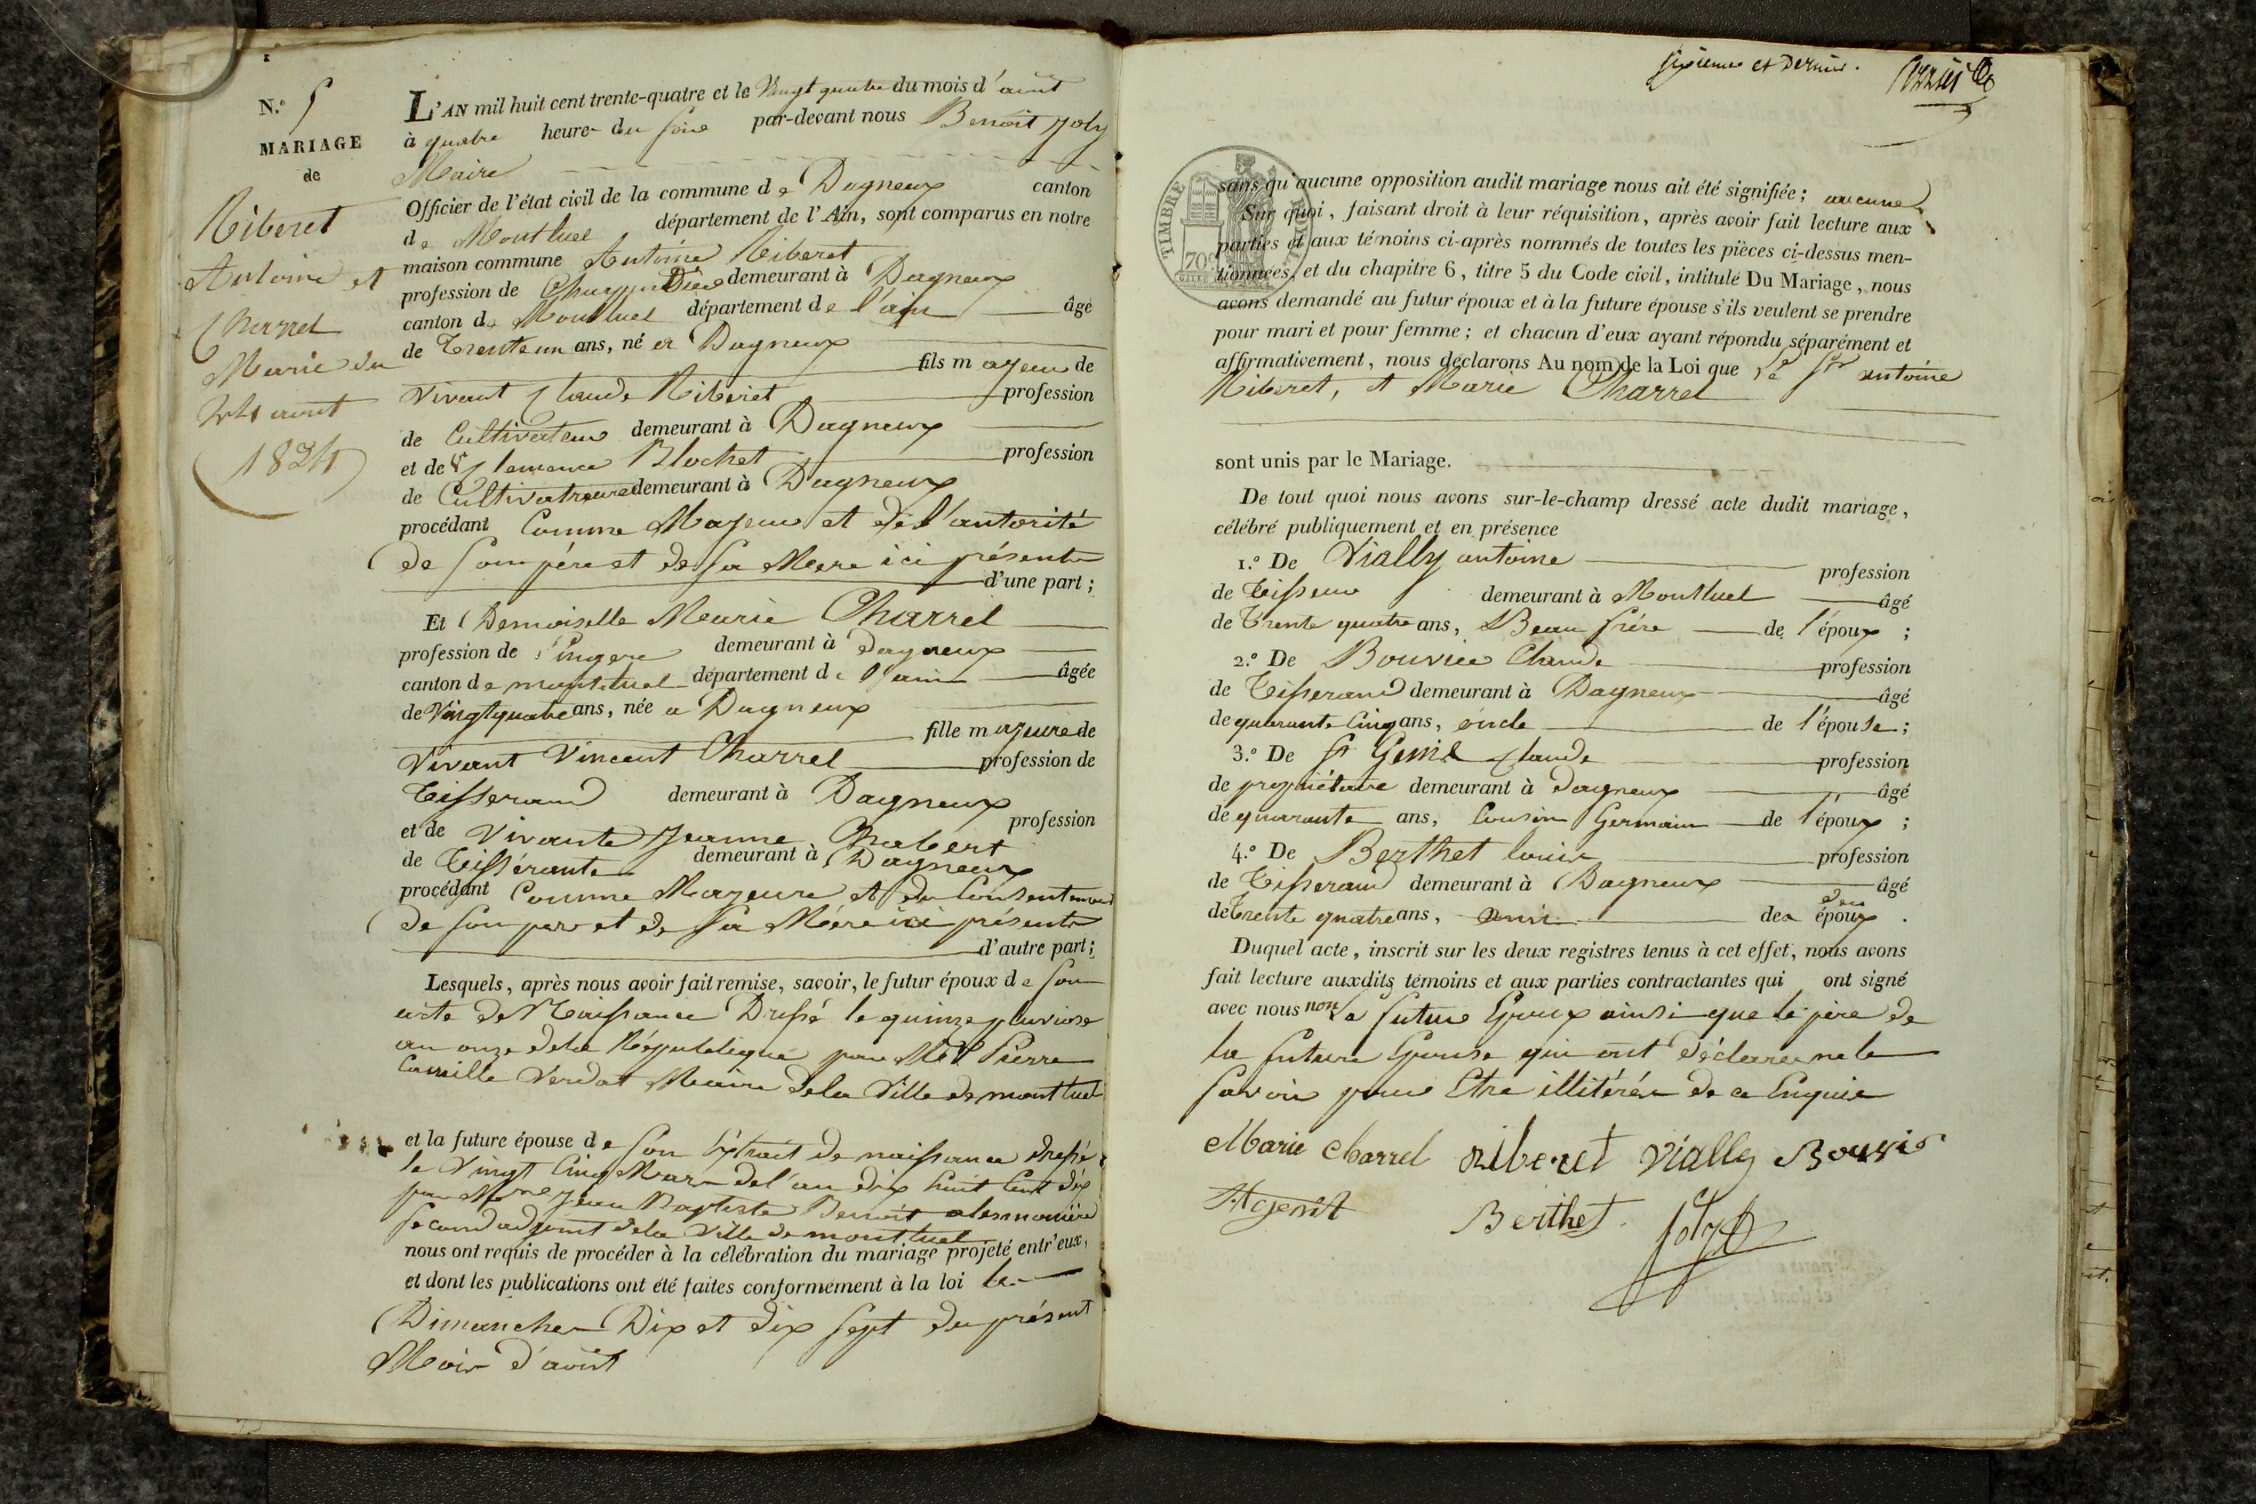 N.o 5
MARIAGE
de
Riberet
Antoine et
Charrel
Marie du
24 aout
1834
L'AN mil huit cent trente-quatre et le Vingt quatre du mois d'août
à quatre heure du soir par-devant nous Benoit Joly
Maire
Officier de l'état civil de la commune de Dagneux canton
de Montluel département de l'Ain, sont comparus en notre
maison commune Antoine Riberet
profession de demeurant à Dagneux
canton de Montluel département de l'ain âgé
de Trente un ans, né a Dagneux
fils majeur de
vivant Claude Riberet profession
de Cultivateur demeurant à Dagneux
et de Clemence Blochet profession
de Cultivatrice demeurant à Dagneux
procédant Comme Majeur et de l'autorité
de son père et de sa Mere ici présents
d'une part;
Et Demoiselle Marie Charrel
profession de Lingere demeurant à Dagneux
canton de montluel département de l'ain âgée
de Vingt quatre ans, née a Dagneux
fille majeure de
Vivant Vincent Charrel profession de
Tisserand demeurant à Dagneux
et de Vivante Jeanne Chabert profession
de Tissérante demeurant à Dagneux
procédant Comme Majeure et du Consentement
de son pere et de sa Mére ici présents
d'autre part;
Lesquels, après nous avoir fait remise, savoir, le futur époux de son
acte de Naissance Dressé le quinze pluviose
an onze de la République par Mr Pierre
Camille Verdat Maire de la Ville de montluel
et la future épouse de son Extrait de naissance dressé
le Vingt Cinq Mars de l'an dix huit Cent dix
par Jean Baptiste Benoit
second adjoint de la Ville de montluel
nous ont requis de procéder à la célébration du mariage projeté entr'eux,
et dont les publications ont été faites conformément à la loi les
Dimanches Dix et dix sept du présent
Mois d'août
sixieme et Dernier.
TIMBRE ROYAL
70c
sans qu'aucune opposition audit mariage nous ait été signifiée; aucune
Sur quoi, faisant droit à leur réquisition, après avoir fait lecture aux
parties et aux témoins ci-après nommés de toutes les pièces ci-dessus men-
tionnées, et du chapitre 6, titre 5 du Code civil, intitulé Du Mariage, nous
avons demandé au futur époux et à la future épouse s'ils veulent se prendre
pour mari et pour femme; et chacun d'eux ayant répondu séparément et
affirmativement, nous déclarons Au nom de la Loi que Le Sr antoine
Riberet, et Marie Charrel
sont unis par le Mariage.
De tout quoi nous avons sur-le-champ dressé acte dudit mariage,
célébré publiquement et en présence
1.o De Vially antoine profession
de Tisseur demeurant à Montluel âgé
de Trente quatre ans, Beau frére de l'époux;
2.o De Bouvier Claude profession
de Tisserand demeurant à Dagneux âgé
de quarante Cinq ans, oncle de l'épouse;
3.o De Claude profession
de propriétaire demeurant à Dagneux âgé
de quarante ans, Cousin Germain de l'époux;
4.o De Berthet Louis profession
de Tisserand demeurant à Dagneux âgé
de Trente quatre ans, ami des époux.
Duquel acte, inscrit sur les deux registres tenus à cet effet, nous avons
fait lecture auxdits témoins et aux parties contractantes qui ont signé
avec nous non le futur Epoux ainsi que le père de
la future Epouse qui ont déclarer ne le
savoir pour Etre illitérés de ce Enquis
Marie Charrel Riberet Vially Bouvier
Berthet Joly